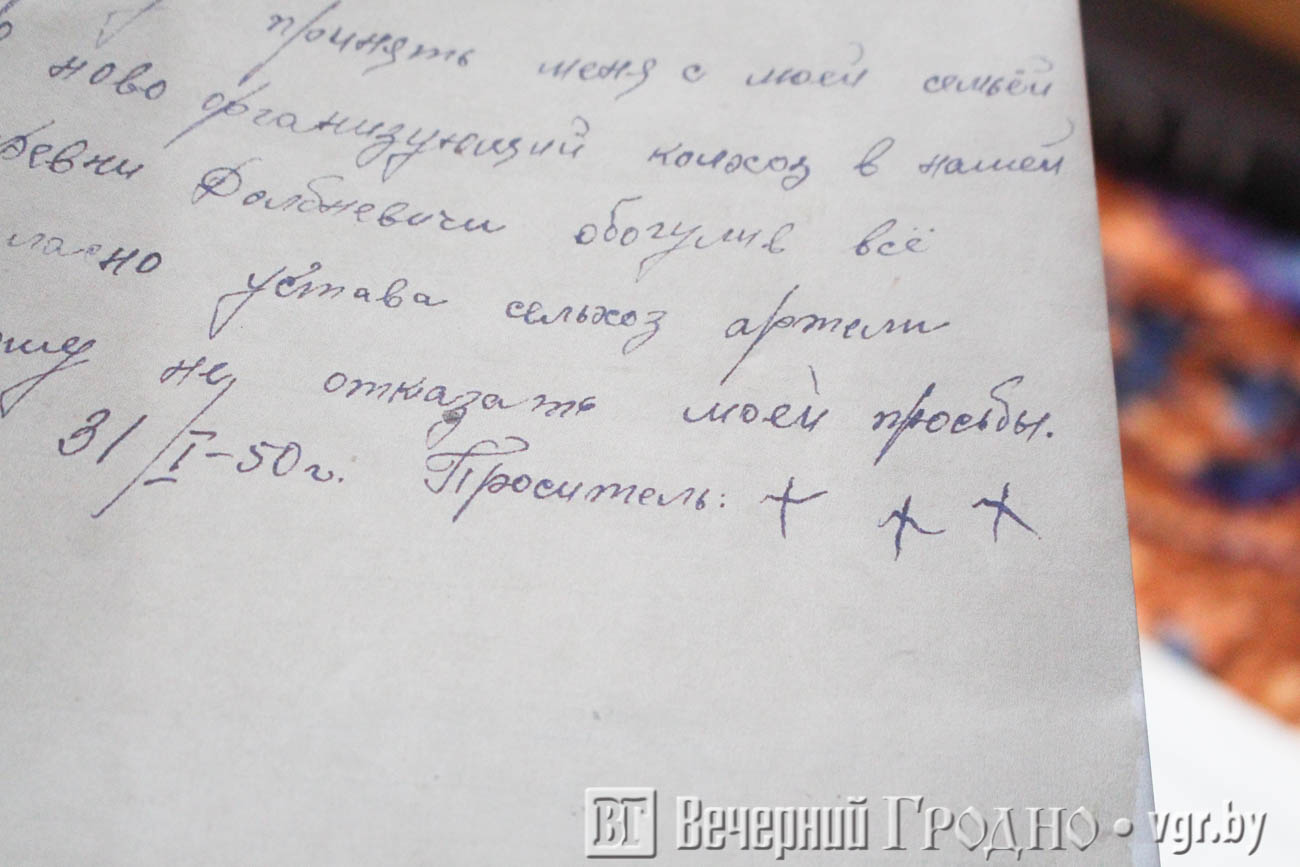 принять меня с моей семьёй
ново организующий колхоз в нашей
ревни Долбневичи обогулив всё
ласно устава сельхоз артели
ошу не отказать моей просьбы.
31/I-50 г. Проситель: + + +
ВГ Вечерний Гродно • vgr.by